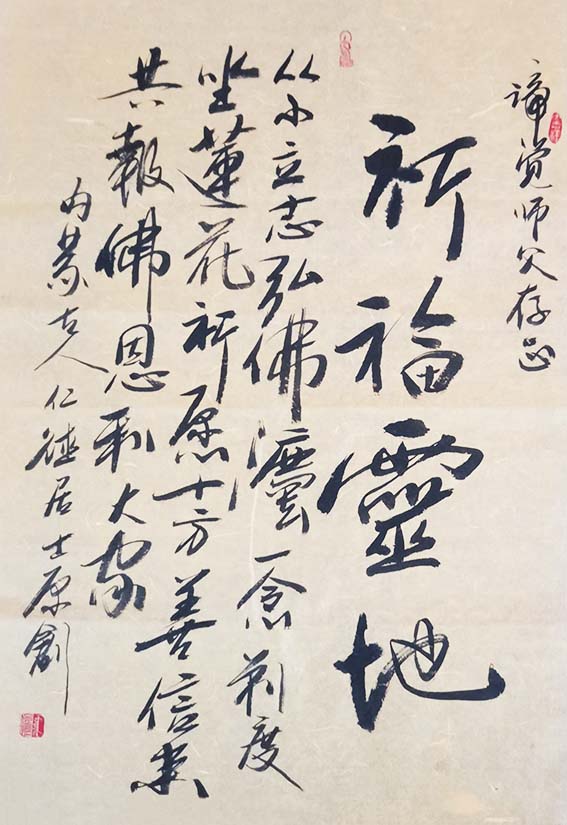 谛觉师父存正
祈福靈地
从小立志弘佛灋一念剃度
坐蓮花祈愿十方善信来
共報佛恩利大家
内蒙古人仁德居士原創